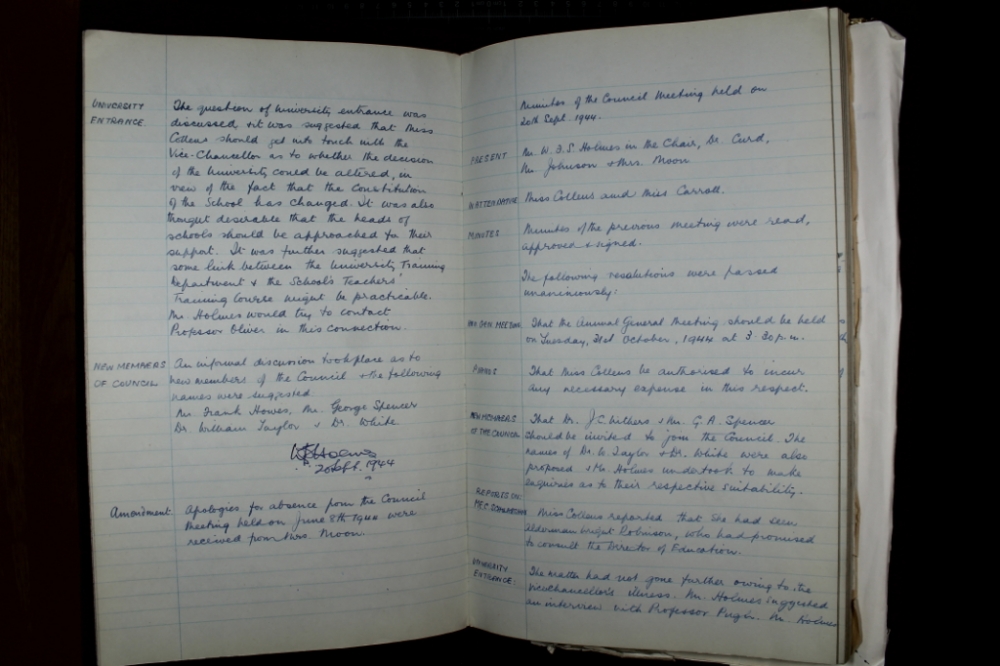 UNIVERSITY ENTRANCE.
The question of University entrance was
discussed & it was suggested that Miss
Collens should get into touch with the
Vice-Chancellor as to whether the decision
of the University could be altered, in
view of the fact that the Constitution
of the School has changed. It was also
thought desirable that the heads of
schools should be approached for their
support. It was further suggested that
some link between the University Training
Department & the School's Teachers'
Training Course might be practicable.
Mr. Holmes would try to contact
Professor Oliver in this connection.
NEW MEMBERS OF COUNCIL
An informal discussion took place as to
new members of the Council & the following
names were suggested
Mr. Frank Howes, Mr. George Spencer
Dr. William Taylor & Dr. White.
Holmes
20 Sept. 1944
Amendment.
Apologies for absence from the Council
Meeting held on June 8th 1944 were
received from Mrs. Moon.
Minutes of the Council Meeting held on
20th Sept. 1944.
PRESENT
Mr. W. B. S. Holmes in the Chair, Dr. Curd,
Mr. Johnson & Mrs. Moon
IN ATTENDANCE
Miss Collens and Miss Carroll.
MINUTES
Minutes of the previous meeting were read,
approved & signed.
The following resolutions were passed
unanimously:
MEETING
That the Annual General Meeting should be held
on Tuesday, 31st October, 1944 at 3.30 p.m.
FUNDS
That Miss Collens be authorised to incur
any necessary expense in this respect.
NEW MEMBERS
OF THE COUNCIL
That Dr. J.C. Withers & Mr. G. A. Spencer
should be invited to join the Council. The
names of Dr. W. Taylor & Dr. White were also
proposed & Mr. Holmes undertook to make
enquiries as to their respective suitability.
REPORTS ON
Miss Collens reported that she had seen
Alderman Wright Robinson, who had promised
to consult the Director of Education.
UNIVERSITY
ENTRANCE:
The matter had not gone further owing to the
Vice Chancellor's illness. Mr. Holmes suggested
an interview with Professor Pugin. Mr. Holmes